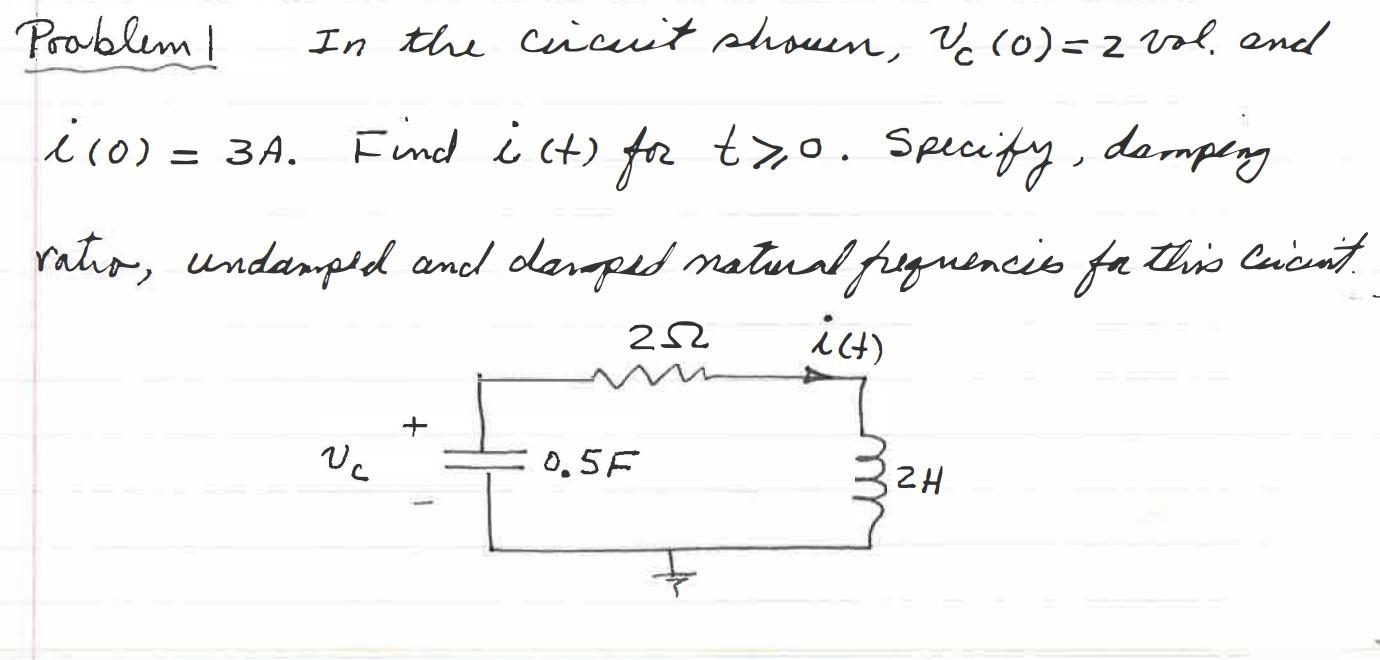 Problem 1 In the circuit shown, Vc (0) = 2 vol. and
i (0) = 3A. Find i (t) for t ≥ 0. Specify, damping
ratio, undamped and damped natural frequencies for this circuit.
2Ω i(t)
+
Vc 0.5F 2H
−